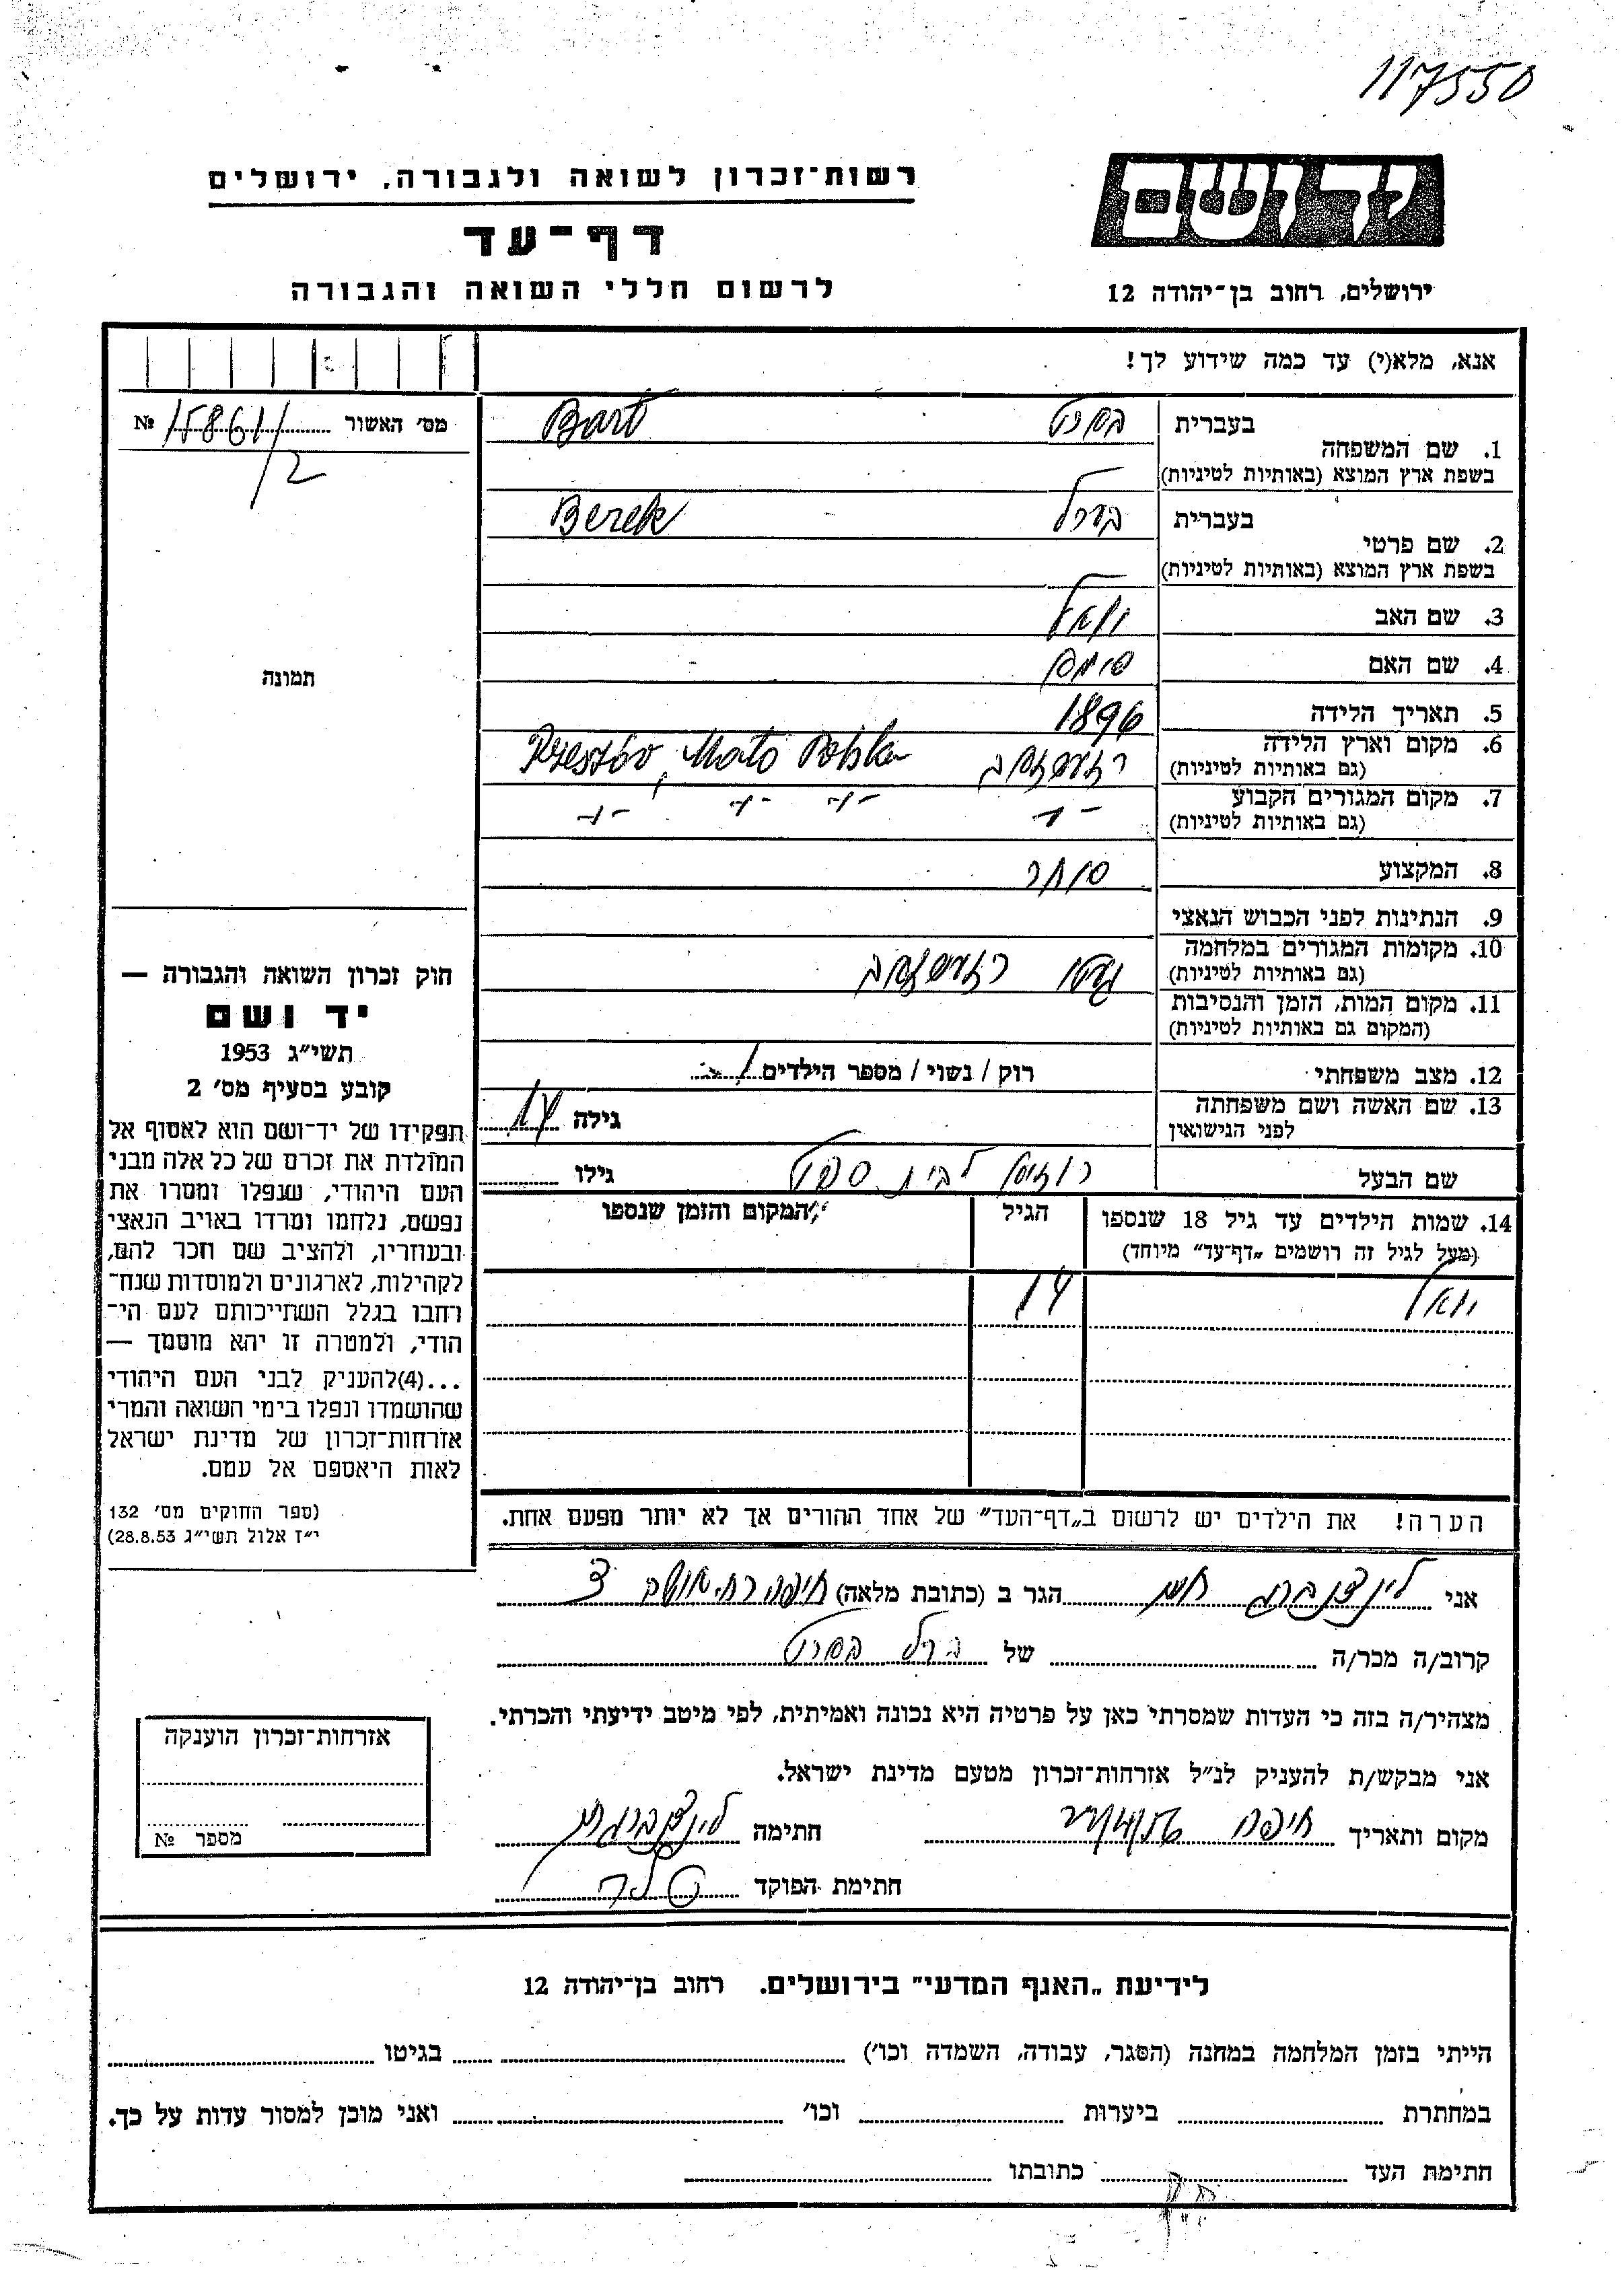 117550
יד ושם
רשות־זכרון לשואה ולגבורה, ירושלים
דף־עד
לרשום חללי השואה והגבורה
ירושלים, רחוב בן־יהודה 12
אנא, מלא(י) עד כמה שידוע לך!
מס׳ האשור 15861/2 №
תמונה
חוק זכרון השואה והגבורה —
יד ושם
תשי״ג 1953
קובע בסעיף מס׳ 2
תפקידו של יד־ושם הוא לאסוף אל
המולדת את זכרם של כל אלה מבני
העם היהודי, שנפלו ומסרו את
נפשם, נלחמו ומרדו באויב הנאצי
ובעוזריו, ולהציב שם וזכר להם,
לקהילות, לארגונים ולמוסדות שנח־
רחבו בגלל השתייכותם לעם הי־
הודי, ולמטרה זו יהא מוסמך —
...(4)להעניק לבני העם היהודי
שהושמדו ונפלו בימי השואה והמרי
אזרחות־זכרון של מדינת ישראל
לאות היאספם אל עמם.
(ספר החוקים מס׳ 132
י״ז אלול תשי״ג 28.8.53)
1. שם המשפחה
בעברית בארט Bart
בשפת ארץ המוצא (באותיות לטיניות)
2. שם פרטי
בעברית בערל Berek
בשפת ארץ המוצא (באותיות לטיניות)
3. שם האב
4. שם האם
5. תאריך הלידה 1896
6. מקום וארץ הלידה
(גם באותיות לטיניות)
7. מקום המגורים הקבוע
(גם באותיות לטיניות)
8. המקצוע סוחר
9. הנתינות לפני הכבוש הנאצי
10. מקומות המגורים במלחמה
(גם באותיות לטיניות) גטו
11. מקום המות, הזמן והנסיבות
(המקום גם באותיות לטיניות)
12. מצב משפחתי רוק / נשוי / מספר הילדים 1
13. שם האשה ושם משפחתה
לפני הנישואין גילה
שם הבעל לבית גילו
14. שמות הילדים עד גיל 18 שנספו הגיל המקום והזמן שנספו
(מעל לגיל זה רושמים „דף־עד״ מיוחד)
הערה! את הילדים יש לרשום ב„דף־העד״ של אחד ההורים אך לא יותר מפעם אחת.
אני לינדנברג הגר ב (כתובת מלאה) חיפה
קרוב/ה מכר/ה של ברל בארט
מצהיר/ה בזה כי העדות שמסרתי כאן על פרטיה היא נכונה ואמיתית, לפי מיטב ידיעתי והכרתי.
אני מבקש/ת להעניק לנ״ל אזרחות־זכרון מטעם מדינת ישראל.
מקום ותאריך חיפה חתימה
חתימת הפוקד
אזרחות־זכרון הוענקה
מספר №
לידיעת „האגף המדעי״ בירושלים. רחוב בן־יהודה 12
הייתי בזמן המלחמה במחנה (הסגר, עבודה, השמדה וכו׳) בגיטו
במחתרת ביערות וכו׳ ואני מוכן למסור עדות על כך.
חתימת העד כתובתו